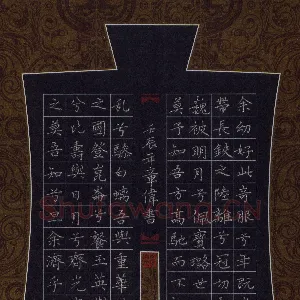 余幼好此奇服兮年既
帶長鋏之陸離兮冠切
嵬被明月兮佩寶璐世
莫予知吾方高馳而不
壬辰年章偉書
虬兮驂白螭吾與重華
之圃登崑崙兮餐玉英
兮比壽與日月兮齊光
之莫吾知兮旦余濟乎